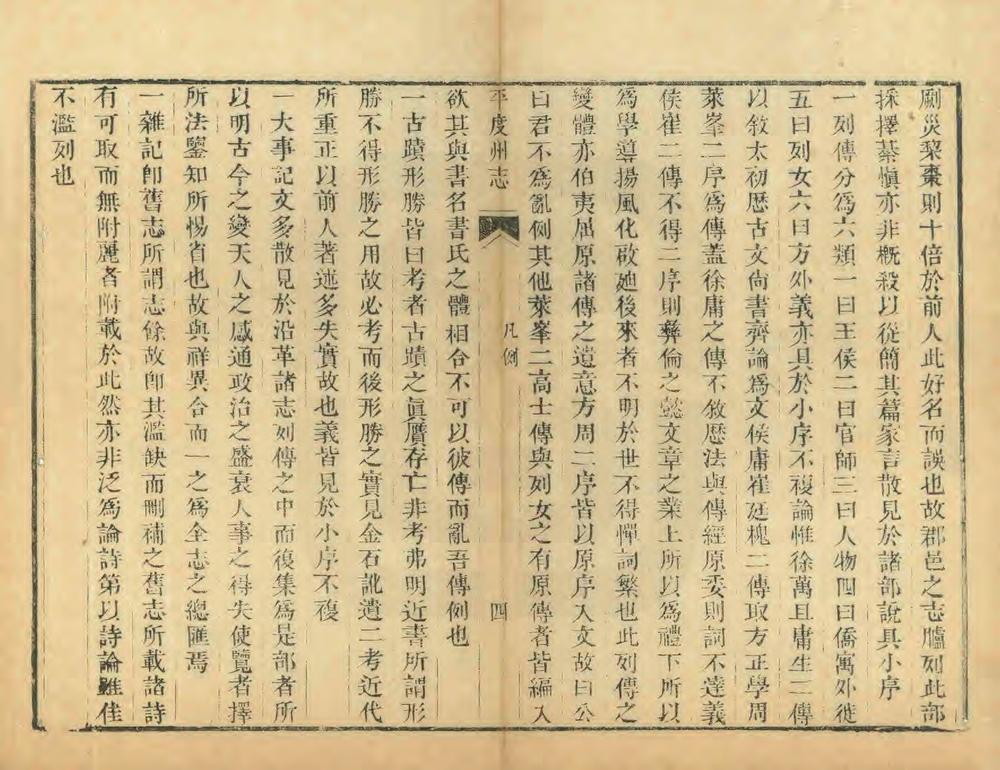 劂災棃棗則十倍於前人此好名而誤也故郡邑之志臚列此部
採擇綦愼亦非槪殺以從簡其篇家言散見於諸部說具小序
一列傳分爲六類一曰王侯二曰官師三曰人物四曰僑寓外徙
五曰列女六曰方外義亦具於小序不複論惟徐萬且庸生二傳
以敘太初厯古文尙書齊論爲文侯庸崔廷槐二傳取方正學周
萊峯二序爲傳蓋徐庸之傳不敘厯法與傳經原委則詞不達義
侯崔二傳不得二序則彝倫之懿文章之業上所以爲禮下所以
爲學導揚風化啟廸後來者不明於世不得憚詞繁也此列傳之
變體亦伯夷屈原諸傳之遺意方周二序皆以原序入文故曰公
曰君不爲亂例其他萊峯二高士傳與列女之有原傳者皆編入
平度州志
凡例
四
欲其與書名書氏之體相合不可以彼傳而亂吾傳例也
一古蹟形勝皆曰考者古蹟之眞贋存亡非考弗明近書所謂形
勝不得形勝之用故必考而後形勝之實見金石訛遺二考近代
所重正以前人著述多失實故也義皆見於小序不複
一大事記文多散見於沿革諸志列傳之中而復集爲是部者所
以明古今之變天人之感通政治之盛衰人事之得失使覽者擇
所法鑒知所惕省也故與祥異合而一之爲全志之總匯焉
一雜記卽舊志所謂志餘故卽其濫缺而刪補之舊志所載諸詩
有可取而無附麗者附載於此然亦非泛爲論詩第以詩論雖佳
不濫列也